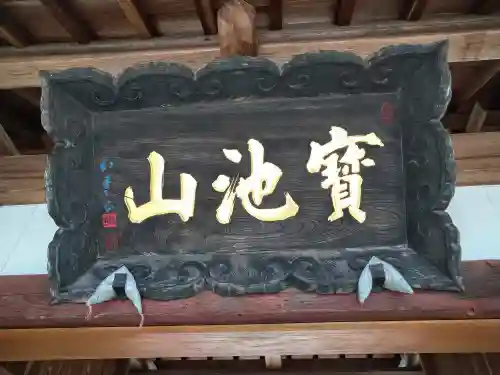 寶池山